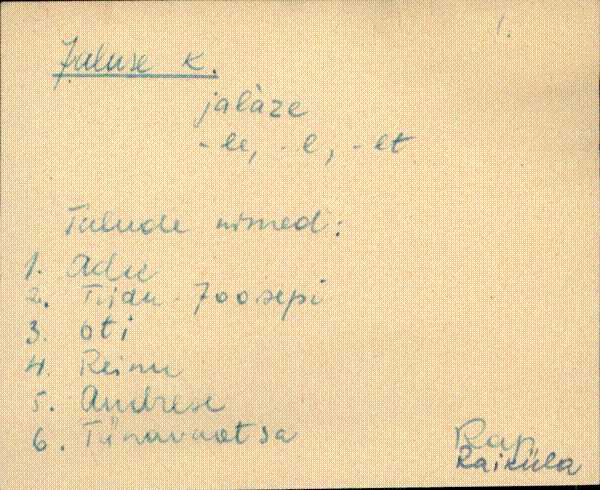 1.
Jaluse k.
jalàze
-le, -l, -lt
Talude nimed:
1. Adu
2. Tijdu-Joosepi
3. Oti
4. Reinu
5. Andrese
6. Tänavaotsa
Rap
Raiküla